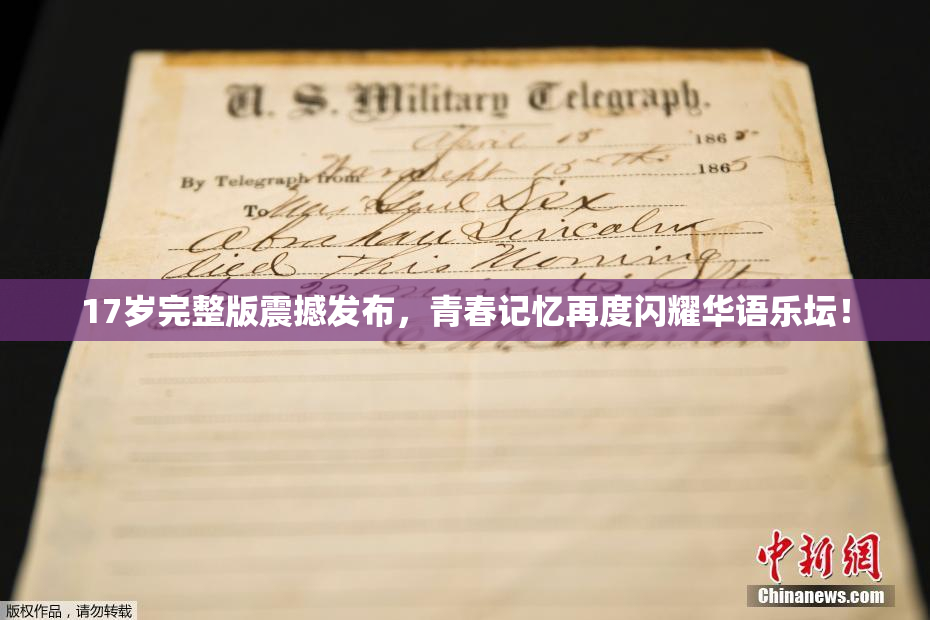 U. S. Military Telegraph.
April 15 1865
By Telegraph from War Dept 15th 1865
To Maj Genl Dix
Abraham Lincoln
died This Morning
at 22 minutes after
17岁完整版震撼发布，青春记忆再度闪耀华语乐坛！
E. M. Stanton
中新网
Chinanews.com
版权作品，请勿转载